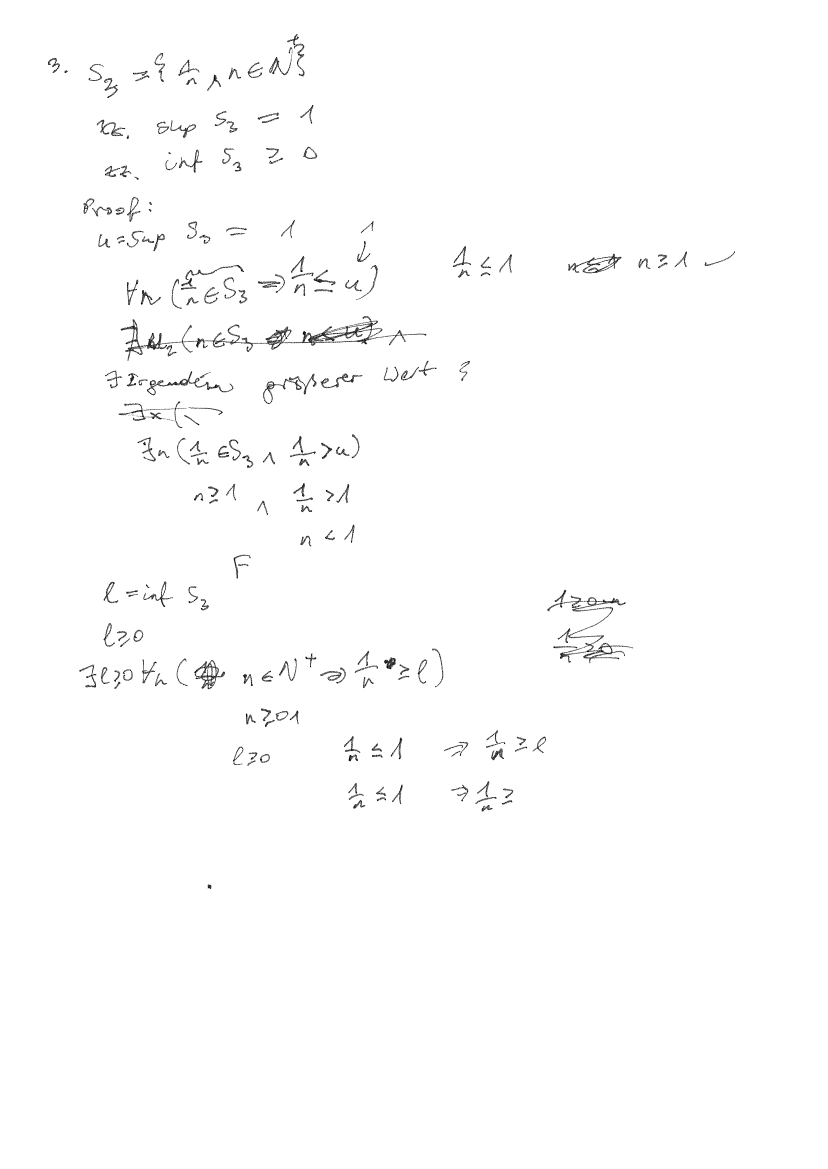 3. S₃ = { 1/n , n ∈ N⁺}
zz. sup S₃ = 1
zz. inf S₃ ≥ 0
Proof:
u = sup S₃ = 1
1
↓
∀n (1/n ∈ S₃ ⇒ 1/n ≤ u) 1/n ≤ 1 n ≥ 1 ✓
∃ Irgendein größerer Wert ?
∃x (
∃n (1/n ∈ S₃ ∧ 1/n > u)
n ≥ 1 ∧ 1/n > 1
n < 1
F
l = inf S₃
l ≥ 0
∃l≥0 ∀n ( n ∈ N⁺ ⇒ 1/n ≥ l)
n ≥ 01
l ≥ 0 1/n ≤ 1 ⇒ 1/n ≥ l
1/n ≤ 1 ⇒ 1/n ≥